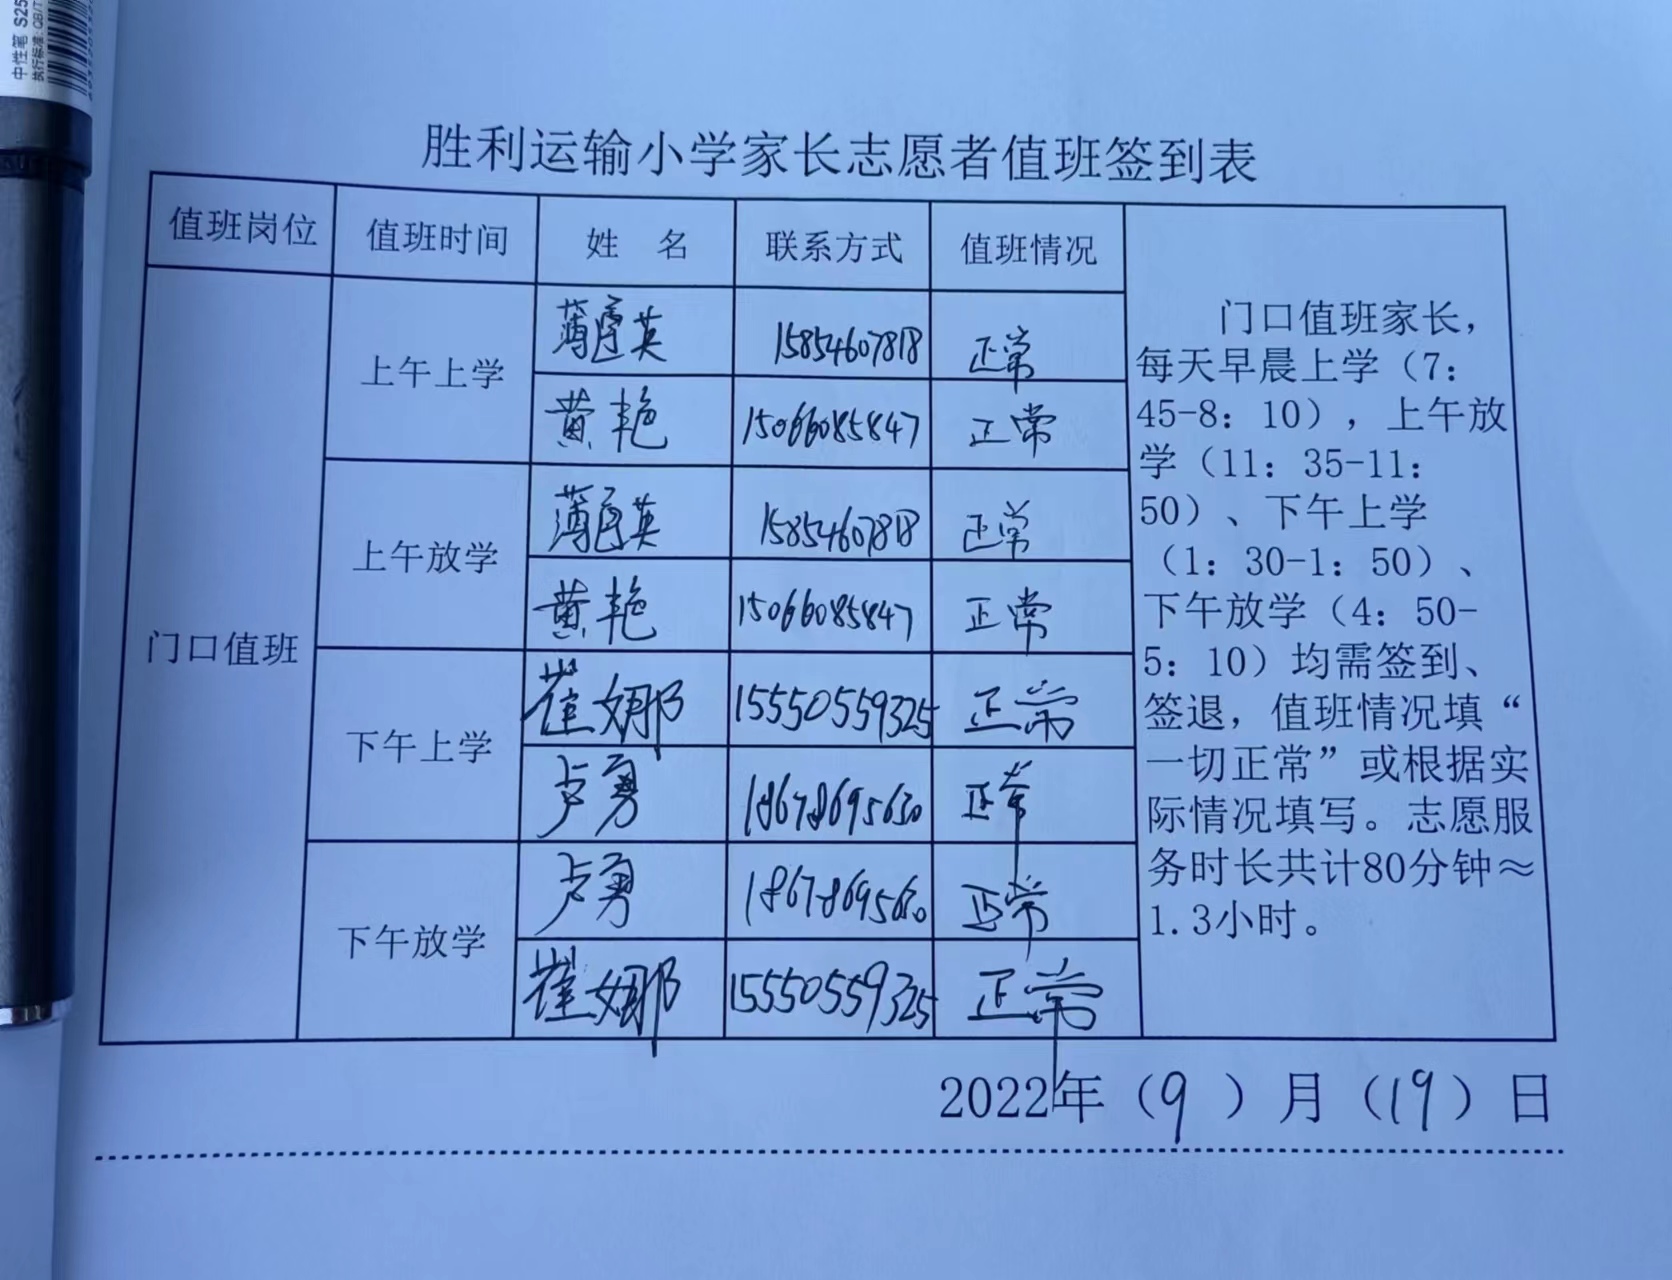 中性笔 S25
执行标准:QB/T
胜利运输小学家长志愿者值班签到表
值班岗位 值班时间 姓 名 联系方式 值班情况
门口值班
上午上学
15854607818 正常
黄艳 15066085847 正常
上午放学
15854607818 正常
黄艳 15066085847 正常
下午上学
崔娜 15550559325 正常
卢勇 18678695630 正常
下午放学
卢勇 18678695630 正常
崔娜 15550559325 正常
门口值班家长，
每天早晨上学（7：
45-8：10），上午放
学（11：35-11：
50）、下午上学
（1：30-1：50）、
下午放学（4：50-
5：10）均需签到、
签退，值班情况填“
一切正常”或根据实
际情况填写。志愿服
务时长共计80分钟≈
1.3小时。
2022年（9）月（19）日